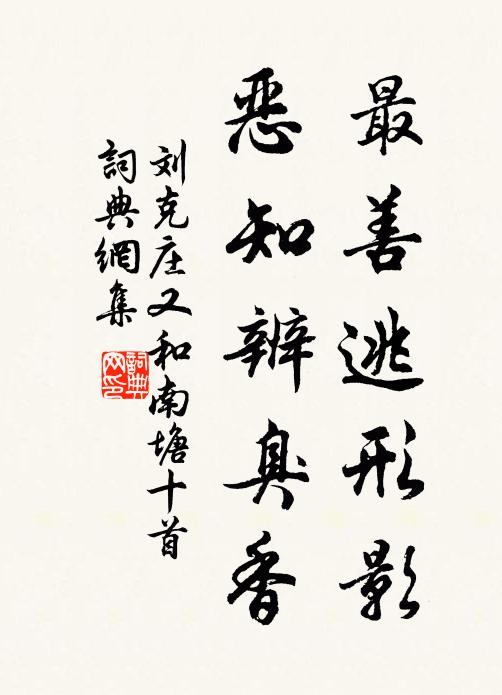 最善逃形影
惡知辨臭香
刘克庄又和南塘十首
詞典網集
詞典网印